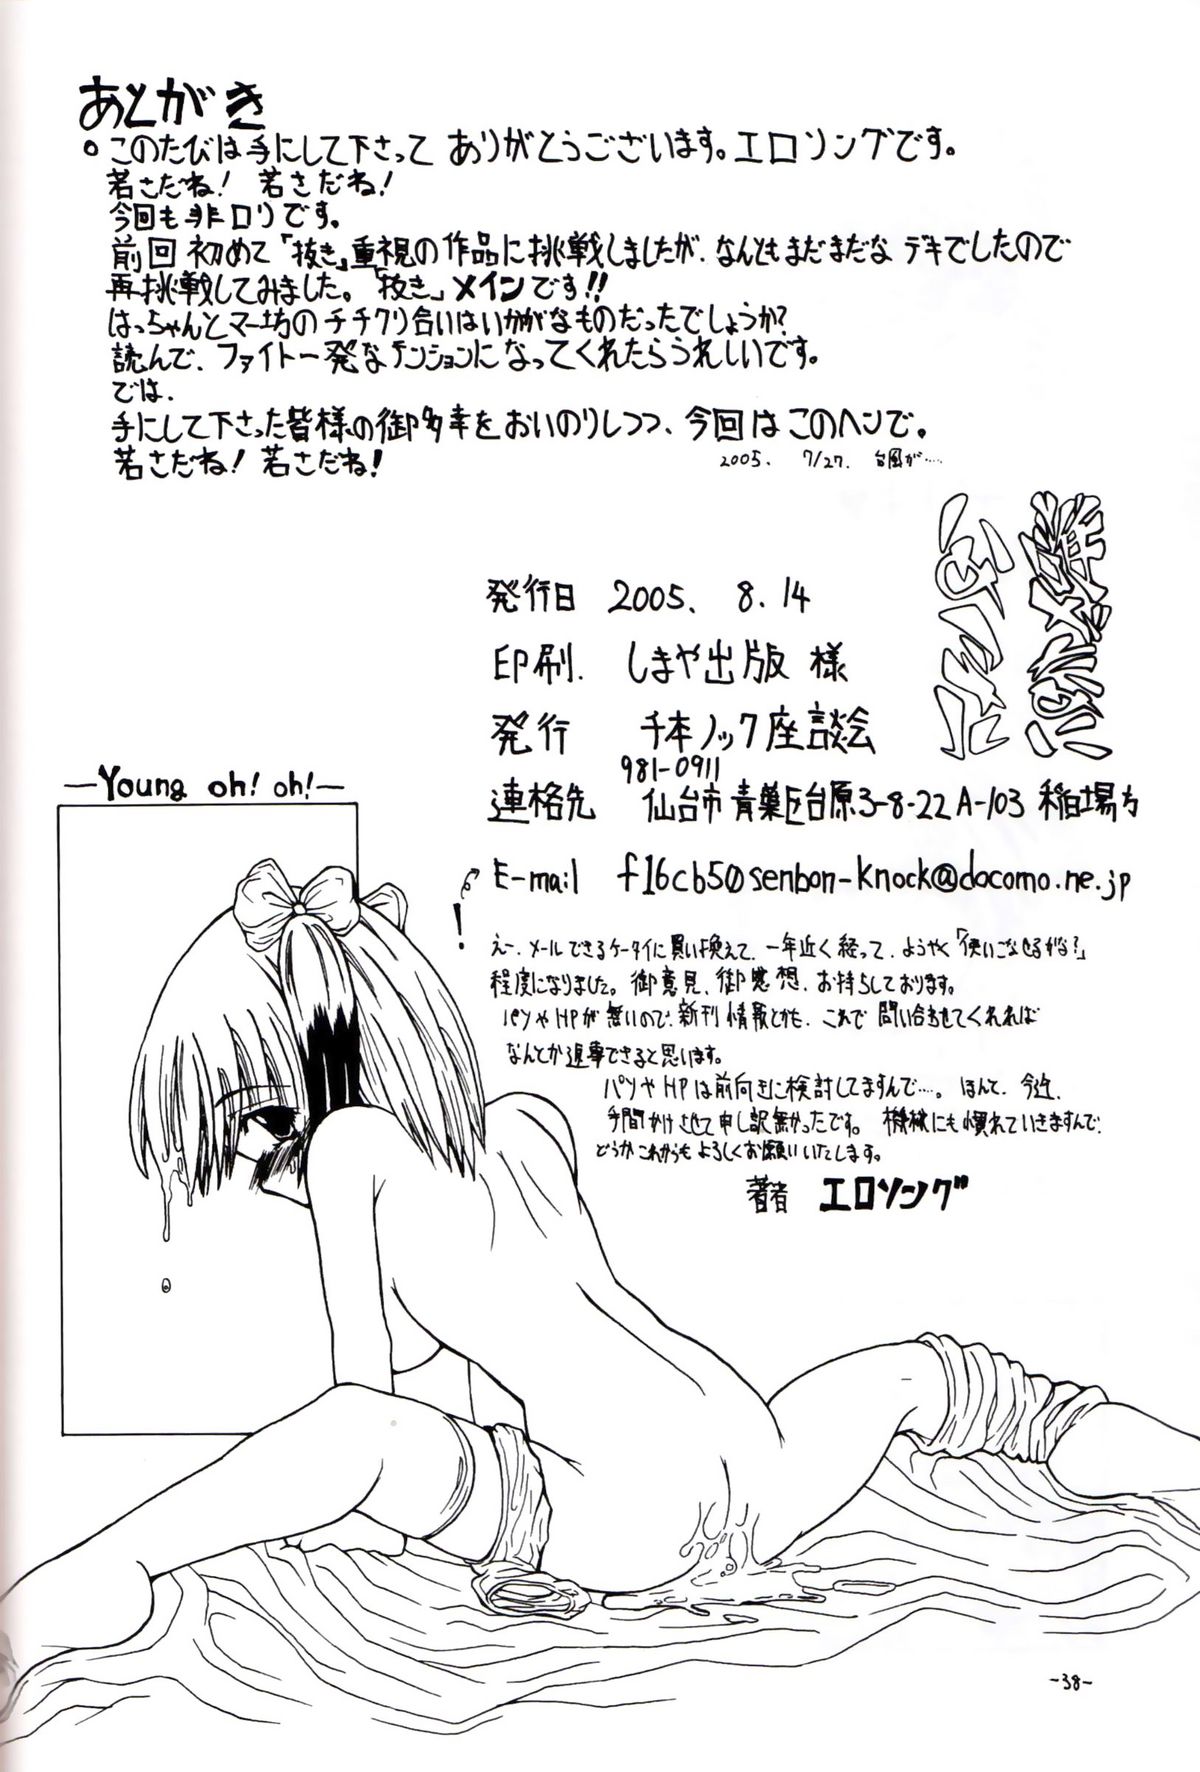 あとがき
○ このたびは手にして下さって ありがとうございます。エロソングです。
若さだね! 若さだね!
今回も非ロリです。
前回初めて「抜き」重視の作品に挑戦しましたが、なんともまだまだな デキでしたので
再挑戦してみました。「抜き」メインです!!
はっちゃんとマー坊のチチクリ合いはいかがなものだったでしょうか?
読んで、ファイトー発なテンションになってくれたらうれしいです。
では、
手にして下さった皆様の御多幸をおいのりしつつ、今回はこのヘンで。
若さだね! 若さだね!
2005. 7/27. 台風が……
発行日 2005. 8.14
印刷. しまや出版 様
発行 千本ノック座談会
981-0911
連絡先 仙台市青葉区台原3-8-22 A-103 稲場方
E-mail f16cb50senbon-knock@docomo.ne.jp
えー、メールできるケータイに買い換えて、一年近く経って、ようやく「使いこなせるかな?」
程度になりました。御意見、御感想、お待ちしております。
パソやHPが無いので、新刊情報とかも、これで問い合わせてくれれば
なんとか返事できると思います。
パソやHPは前向きに検討してますんで……。ほんと、今迄
手間かけさせて申し訳無かったです。機械にも慣れていきますんで、
どうかこれからもよろしくお願いいたします。
著者 エロソング
—Young oh! oh!—
-38-